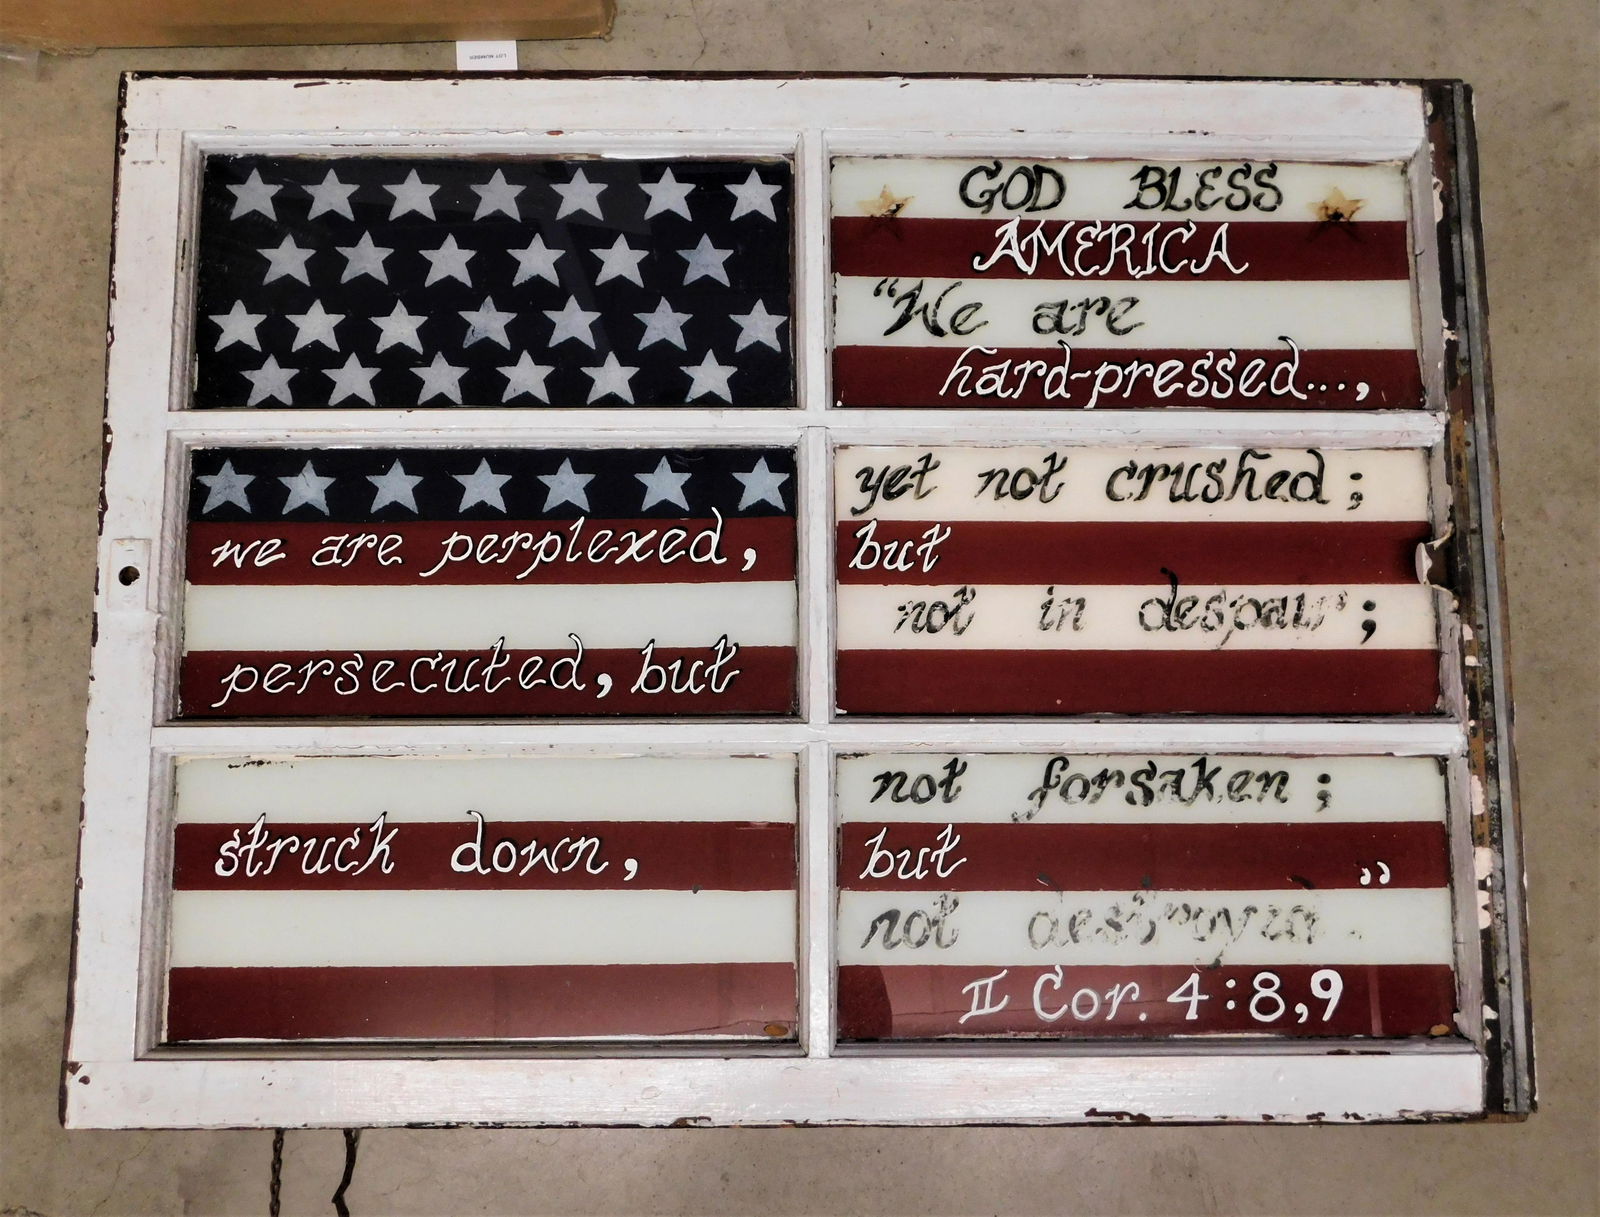 LOT NUMBER
GOD BLESS
AMERICA
"We are
hard-pressed...,
yet not crushed;
we are perplexed, but
not in despair;
persecuted, but
not forsaken;
struck down, but "
not destroyed.
II Cor. 4:8,9